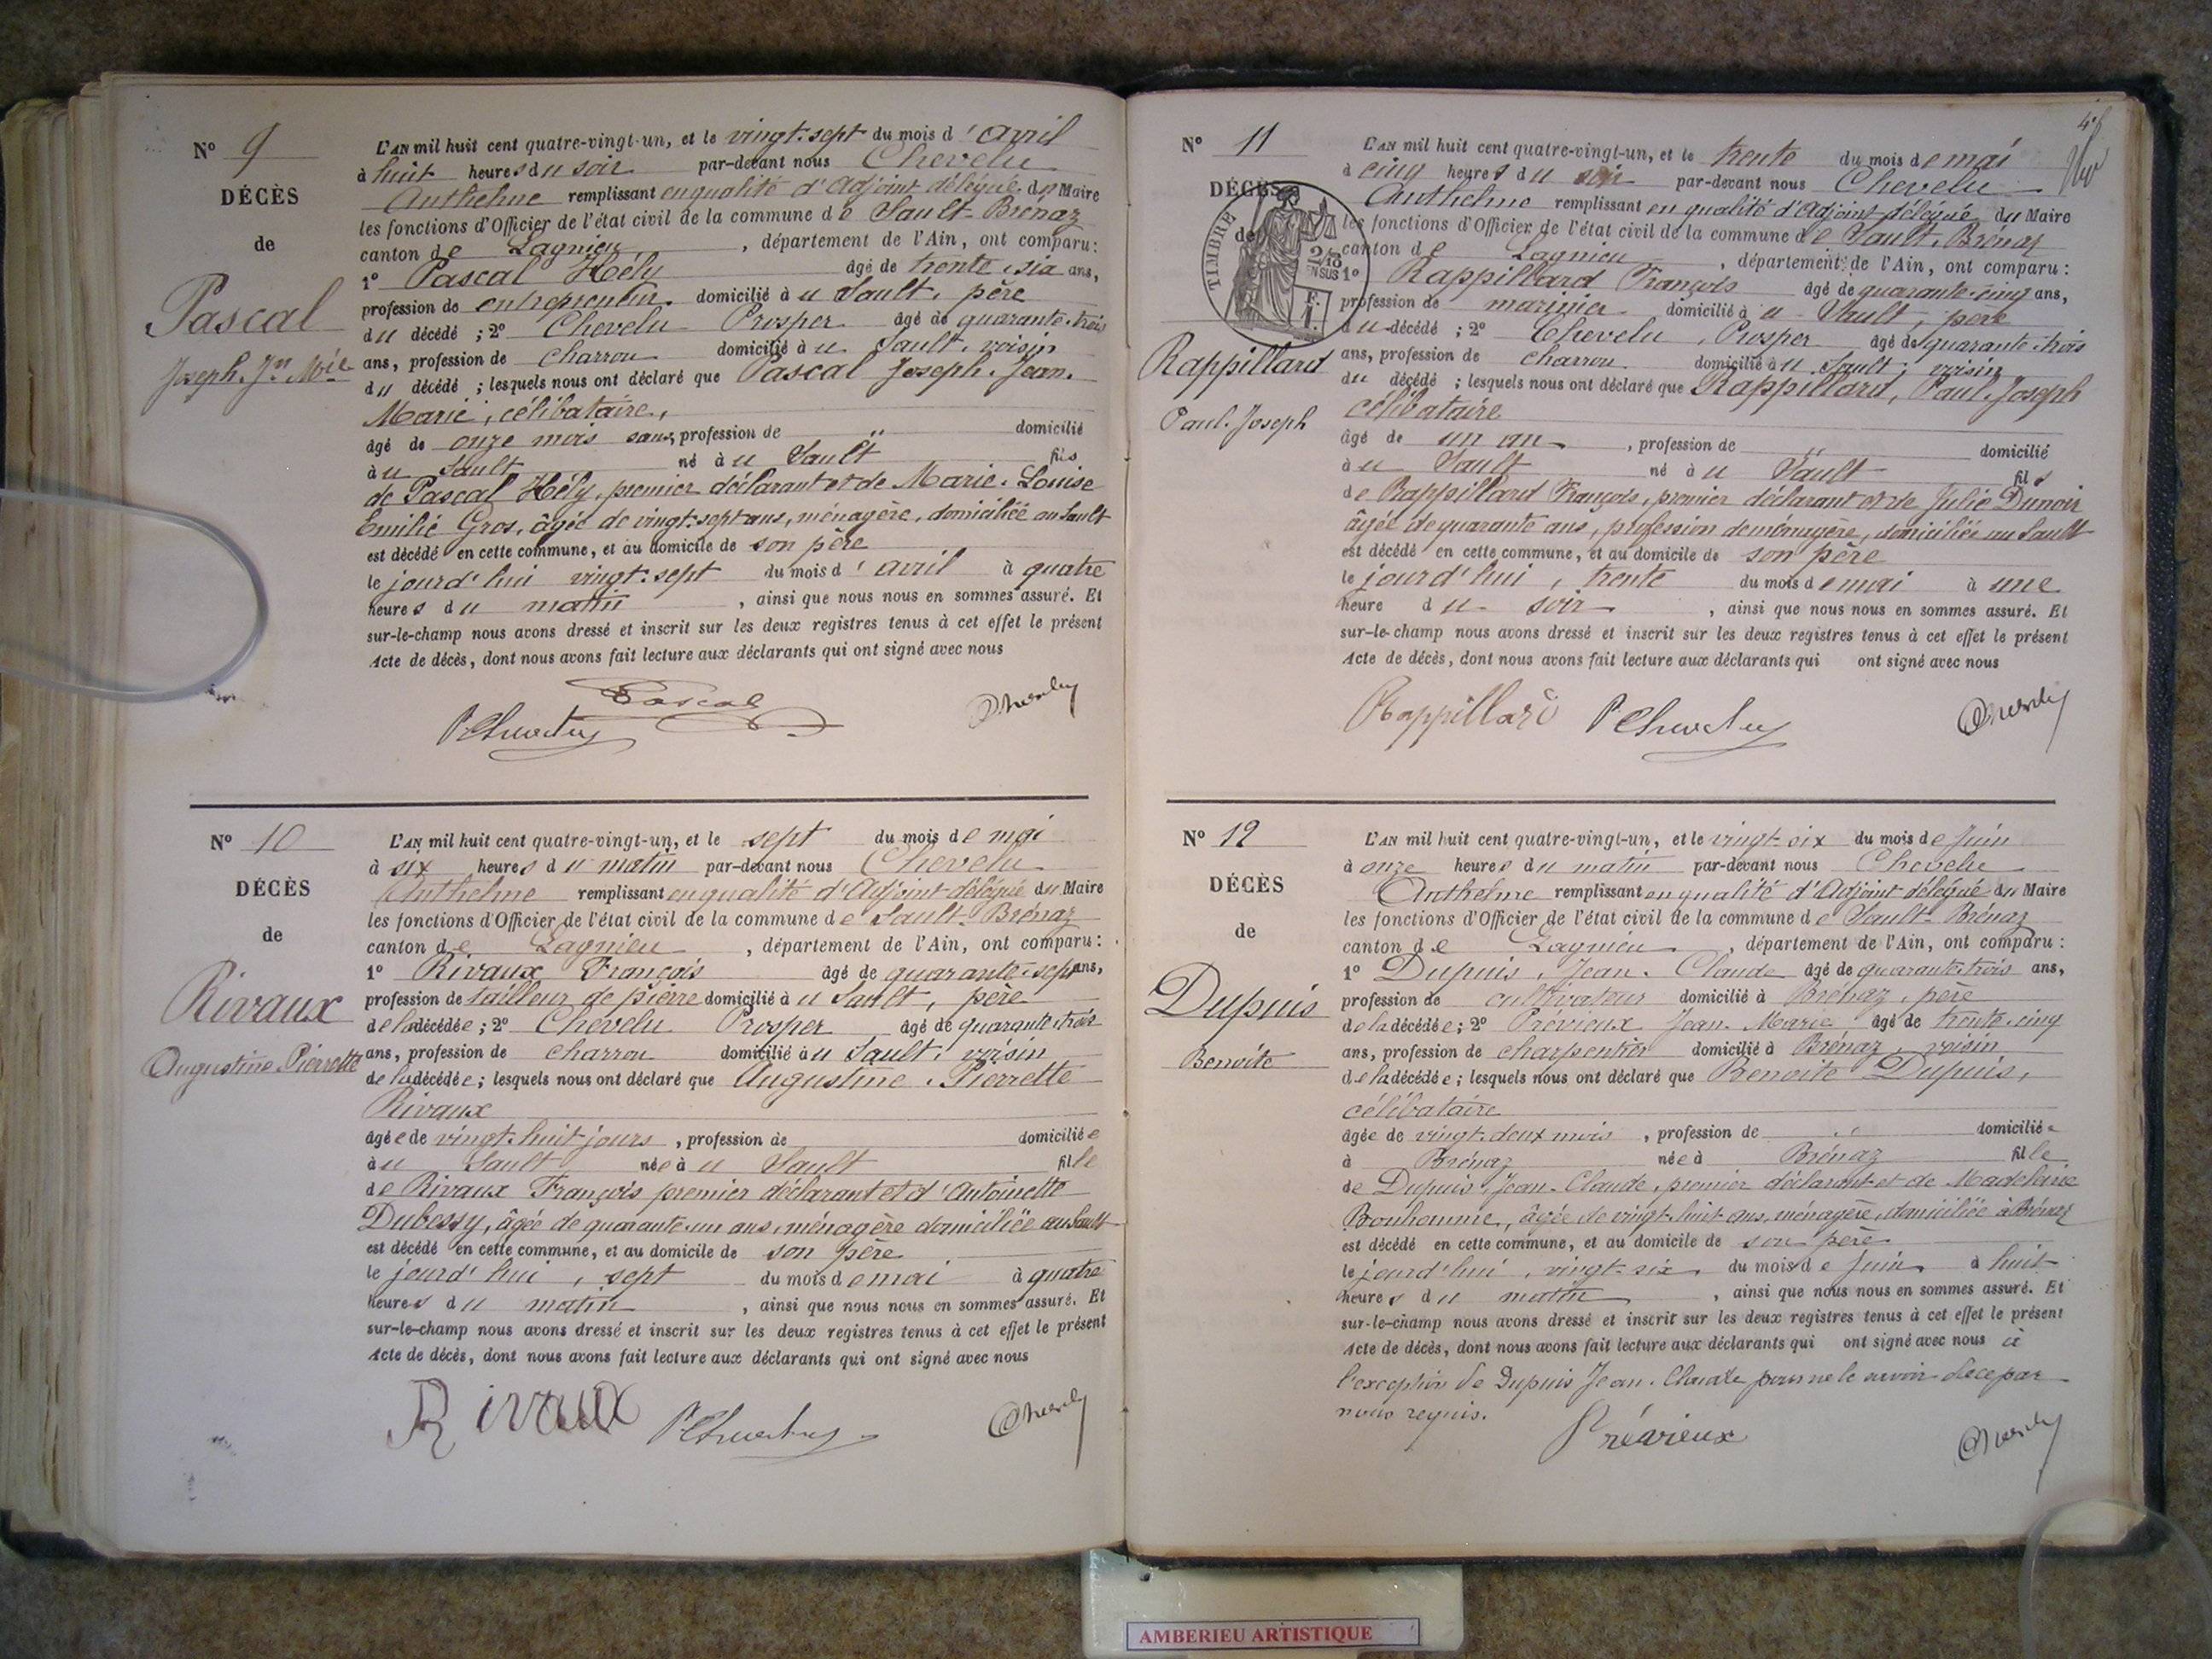 N° 9
DÉCÈS
de
Pascal
Joseph. Jn Mie
L'AN mil huit cent quatre-vingt-un, et le vingt-sept du mois d'avril
à huit heures du soir par-devant nous Chevelu
Anthelme remplissant en qualité d'Adjoint délégué du Maire
les fonctions d'Officier de l'état civil de la commune de Sault-Brénaz
canton de Lagnieu, département de l'Ain, ont comparu:
1° Pascal Hély âgé de trente-six ans,
profession de entrepreneur domicilié à u Sault, père
du décédé; 2° Chevelu Prosper âgé de quarante-trois
ans, profession de charron domicilié à u Sault, voisin
du décédé; lesquels nous ont déclaré que Pascal Joseph-Jean-
Marie, célibataire,
âgé de onze mois sans profession de " domicilié
à u Sault né à u Sault fils
de Pascal Hély, premier déclarant et de Marie-Louise
Emilie Gros, âgée de vingt-sept ans, ménagère, domiciliée au Sault
est décédé en cette commune, et au domicile de son père
le jourd'hui vingt-sept du mois d'avril à quatre
heures du matin, ainsi que nous nous en sommes assuré. Et
sur-le-champ nous avons dressé et inscrit sur les deux registres tenus à cet effet le présent
Acte de décès, dont nous avons fait lecture aux déclarants qui ont signé avec nous
Pascal
P. Chevelu Chevelu
N° 10
DÉCÈS
de
Rivaux
Augustine Pierrette
L'AN mil huit cent quatre-vingt-un, et le sept du mois de mai
à six heures du matin par-devant nous Chevelu
Anthelme remplissant en qualité d'Adjoint délégué du Maire
les fonctions d'Officier de l'état civil de la commune de Sault-Brénaz
canton de Lagnieu, département de l'Ain, ont comparu:
1° Rivaux François âgé de quarante-sept ans,
profession de tailleur de pierre domicilié à u Sault, père
de la décédée; 2° Chevelu Prosper âgé de quarante-trois
ans, profession de charron domicilié à u Sault, voisin
de la décédée; lesquels nous ont déclaré que Augustine-Pierrette
Rivaux
âgée de vingt-huit jours, profession de domiciliée
à u Sault née à u Sault fille
de Rivaux François premier déclarant et d'Antoinette
Dubessy, âgée de quarante-un ans, ménagère domiciliée au Sault
est décédé en cette commune, et au domicile de son père
le jourd'hui, sept du mois de mai à quatre
heures du matin, ainsi que nous nous en sommes assuré. Et
sur-le-champ nous avons dressé et inscrit sur les deux registres tenus à cet effet le présent
Acte de décès, dont nous avons fait lecture aux déclarants qui ont signé avec nous
Rivaux P. Chevelu Chevelu
N° 11
DÉCÈS
de
TIMBRE
2/10
EN SUS
Rappillard
Paul-Joseph
L'AN mil huit cent quatre-vingt-un, et le trente du mois de mai
à cinq heures du soir par-devant nous Chevelu
Anthelme remplissant en qualité d'Adjoint délégué du Maire
les fonctions d'Officier de l'état civil de la commune de Sault-Brénaz
canton de Lagnieu, département de l'Ain, ont comparu:
1° Rappillard François âgé de quarante-cinq ans,
profession de marinier domicilié à u Sault, père
du décédé; 2° Chevelu, Prosper âgé de quarante-trois
ans, profession de charron domicilié à u Sault, voisin
du décédé; lesquels nous ont déclaré que Rappillard, Paul-Joseph
célibataire
âgé de un an, profession de " domicilié
à u Sault né à u Sault fils
de Rappillard François, premier déclarant et de Julie Dunoir
âgée de quarante ans, profession de ménagère, domiciliée au Sault
est décédé en cette commune, et au domicile de son père
le jourd'hui, trente du mois de mai à une
heure du soir, ainsi que nous nous en sommes assuré. Et
sur-le-champ nous avons dressé et inscrit sur les deux registres tenus à cet effet le présent
Acte de décès, dont nous avons fait lecture aux déclarants qui ont signé avec nous
Rappillard P. Chevelu Chevelu
N° 12
DÉCÈS
de
Dupuis
Benoîte
L'AN mil huit cent quatre-vingt-un, et le vingt-six du mois de Juin
à onze heures du matin par-devant nous Chevelu
Anthelme remplissant en qualité d'Adjoint délégué du Maire
les fonctions d'Officier de l'état civil de la commune de Sault-Brénaz
canton de Lagnieu, département de l'Ain, ont comparu:
1° Dupuis, Jean-Claude âgé de quarante-trois ans,
profession de cultivateur domicilié à Brénaz, père
de la décédée; 2° Prévieux Jean-Marie âgé de trente-cinq
ans, profession de charpentier domicilié à Brénaz, voisin
de la décédée; lesquels nous ont déclaré que Benoîte Dupuis,
célibataire
âgée de vingt-deux mois, profession de " domiciliée
à Brénaz née à Brénaz fille
de Dupuis, Jean-Claude, premier déclarant et de Madeleine
Bonhomme, âgée de vingt-huit ans, ménagère, domiciliée à Brénaz
est décédé en cette commune, et au domicile de son père
le jourd'hui, vingt-six, du mois de Juin, à huit
heures du matin, ainsi que nous nous en sommes assuré. Et
sur-le-champ nous avons dressé et inscrit sur les deux registres tenus à cet effet le présent
Acte de décès, dont nous avons fait lecture aux déclarants qui ont signé avec nous à
l'exception de Dupuis Jean-Claude pour ne le savoir de ce par
nous requis.
Prévieux Chevelu
AMBERIEU ARTISTIQUE